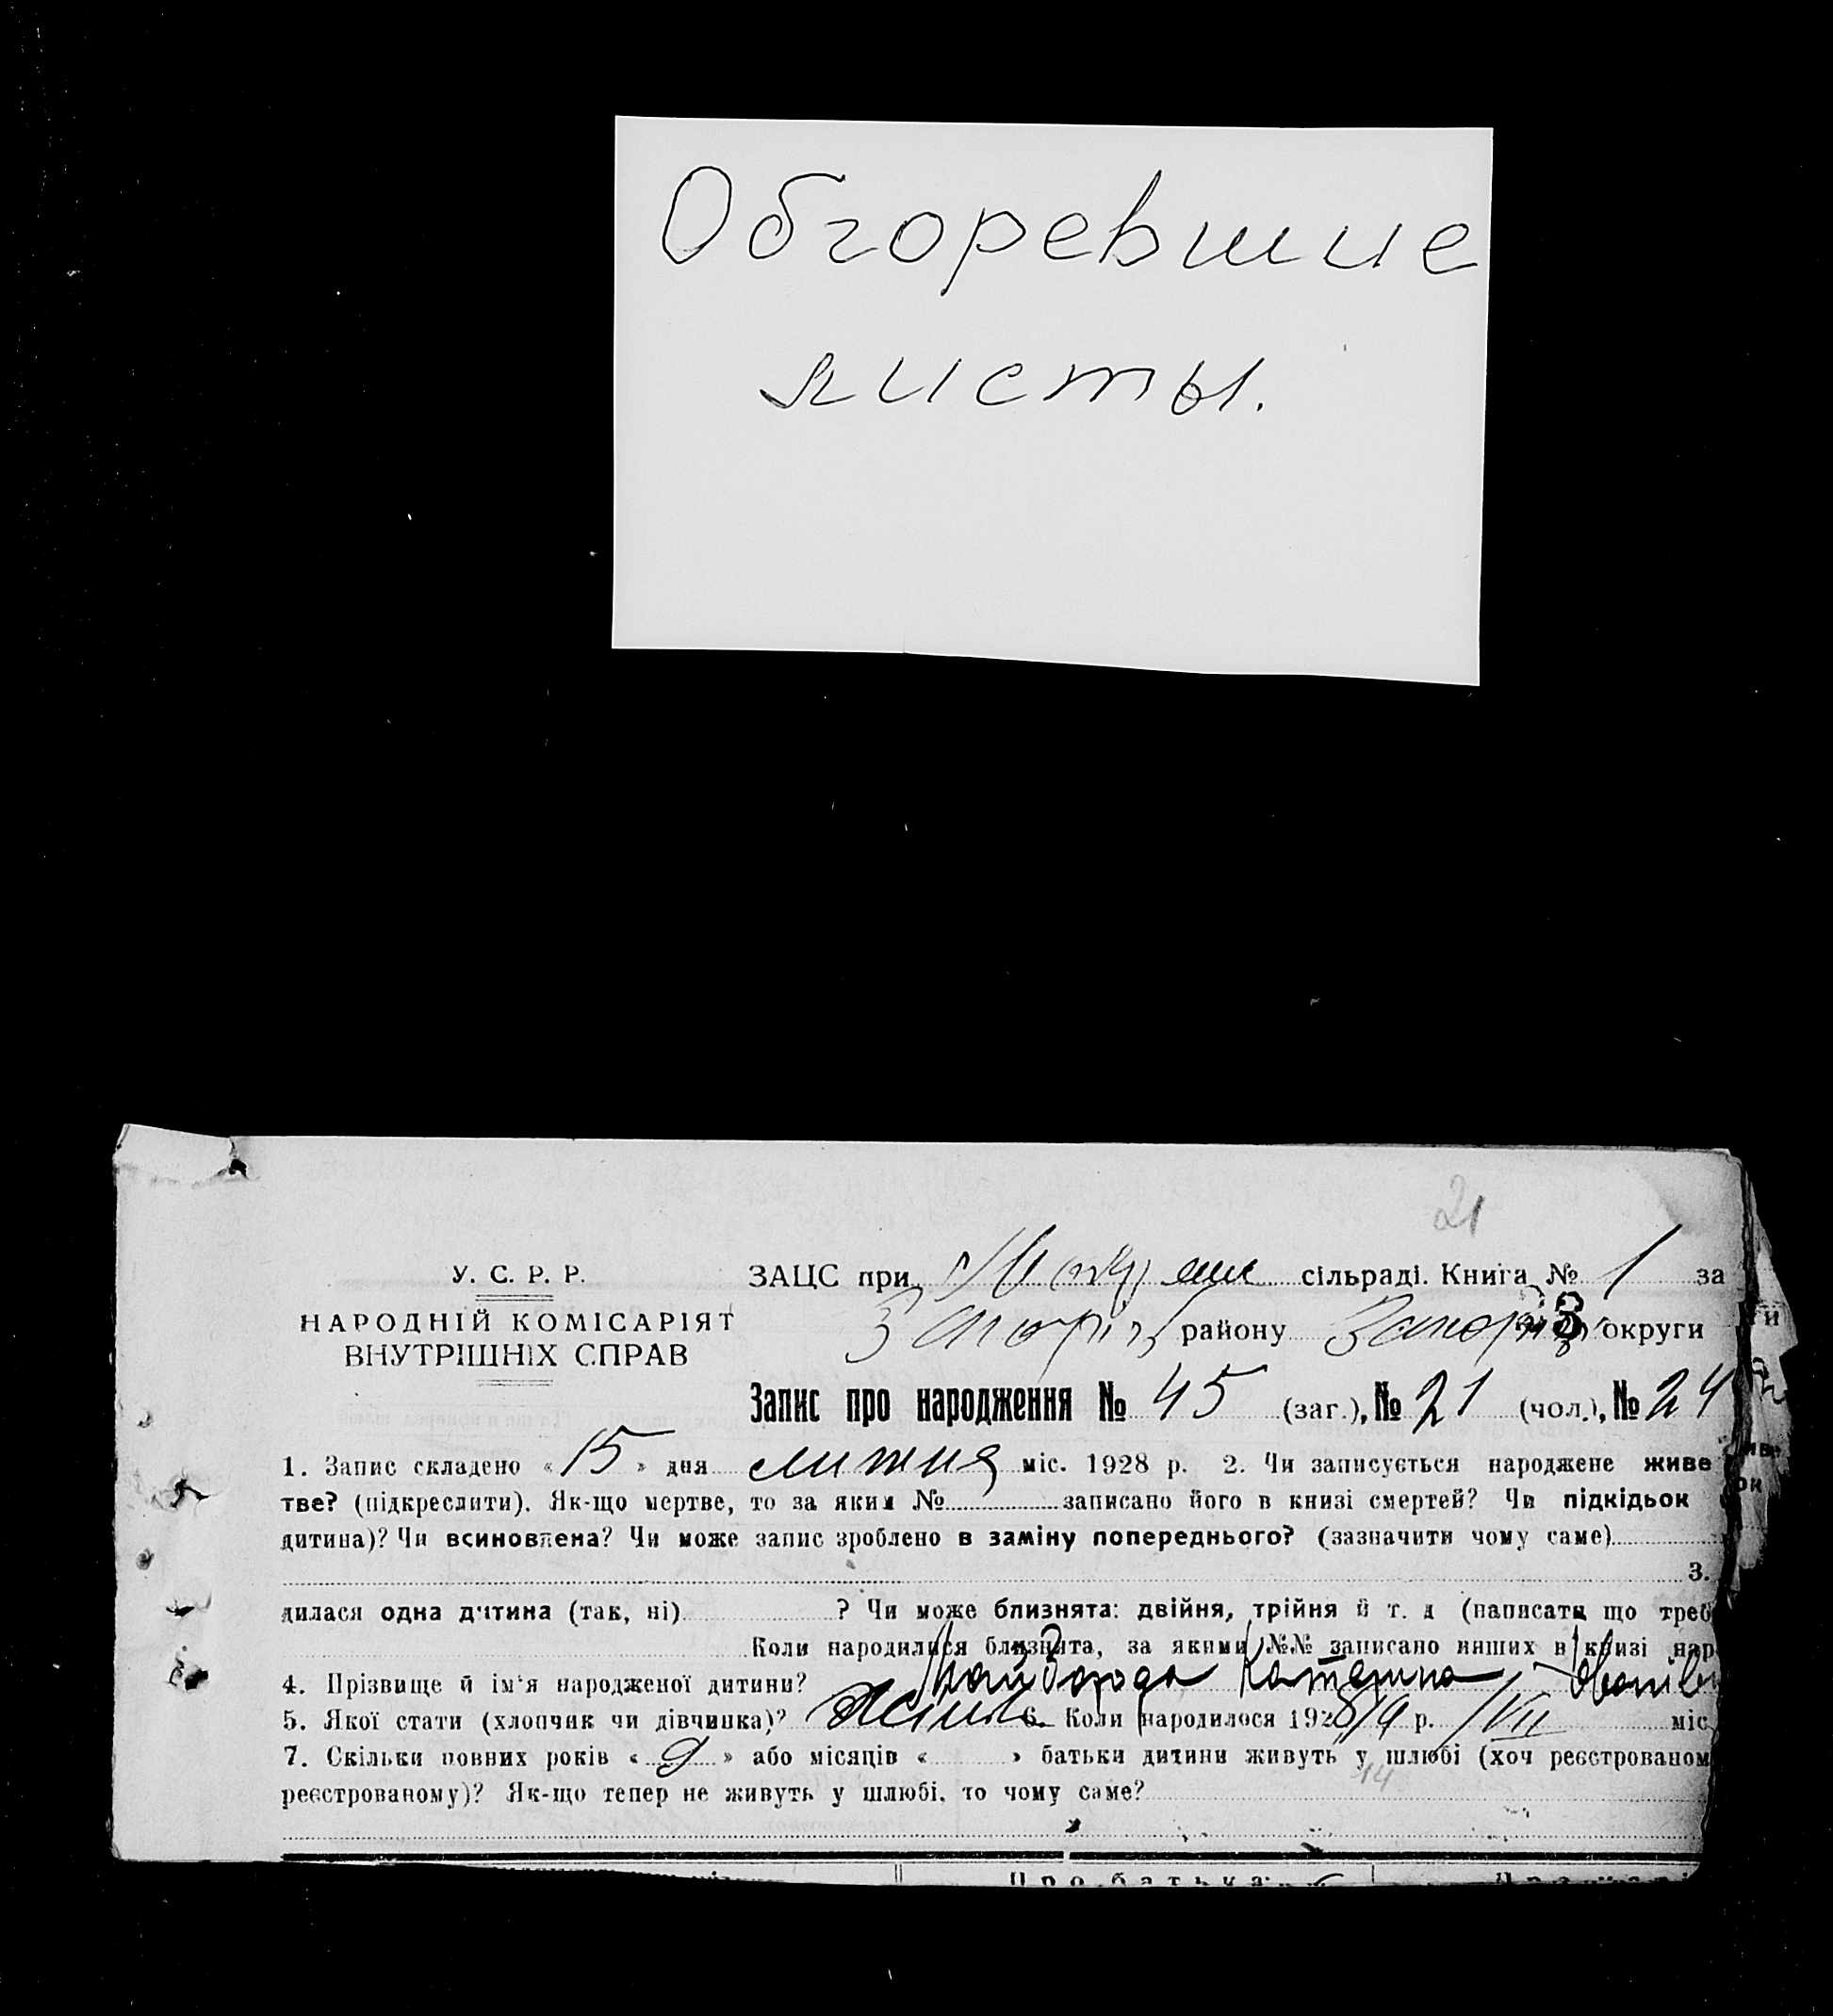 Обгоревшие
листы.
21
У. С. Р. Р.
НАРОДНІЙ КОМІСАРІЯТ
ВНУТРІШНІХ СПРАВ
ЗАЦС при сільраді. Книга № 1 за
Запоріз району Запоріз округи
Запис про народження № 45 (заг.), № 21 (чол.), № 24
1. Запис складено « 15 » дня липня міс. 1928 р. 2. Чи записується народжене живе
тве? (підкреслити). Як-що мертве, то за яким № записано його в книзі смертей? Чи підкідьок
дитина)? Чи всиновлена? Чи може запис зроблено в заміну попереднього? (зазначити чому саме)
3.
дилася одна дитина (так, ні) ? Чи може близнята: двійня, трійня й т. д (написати що треб
Коли народилися близнята, за якими №№ записано инших в книзі нар
4. Прізвище й ім'я народженої дитини? Майборода Катерина Іванівн
5. Якої стати (хлопчик чи дівчинка)? 6. Коли народилося 1928 р. VII міс
7. Скільки повних років « 9 » або місяців « » батьки дитини живуть у шлюбі (хоч реєстрованом
реєстрованому)? Як-що тепер не живуть у шлюбі, то чому саме?
14
Про батька